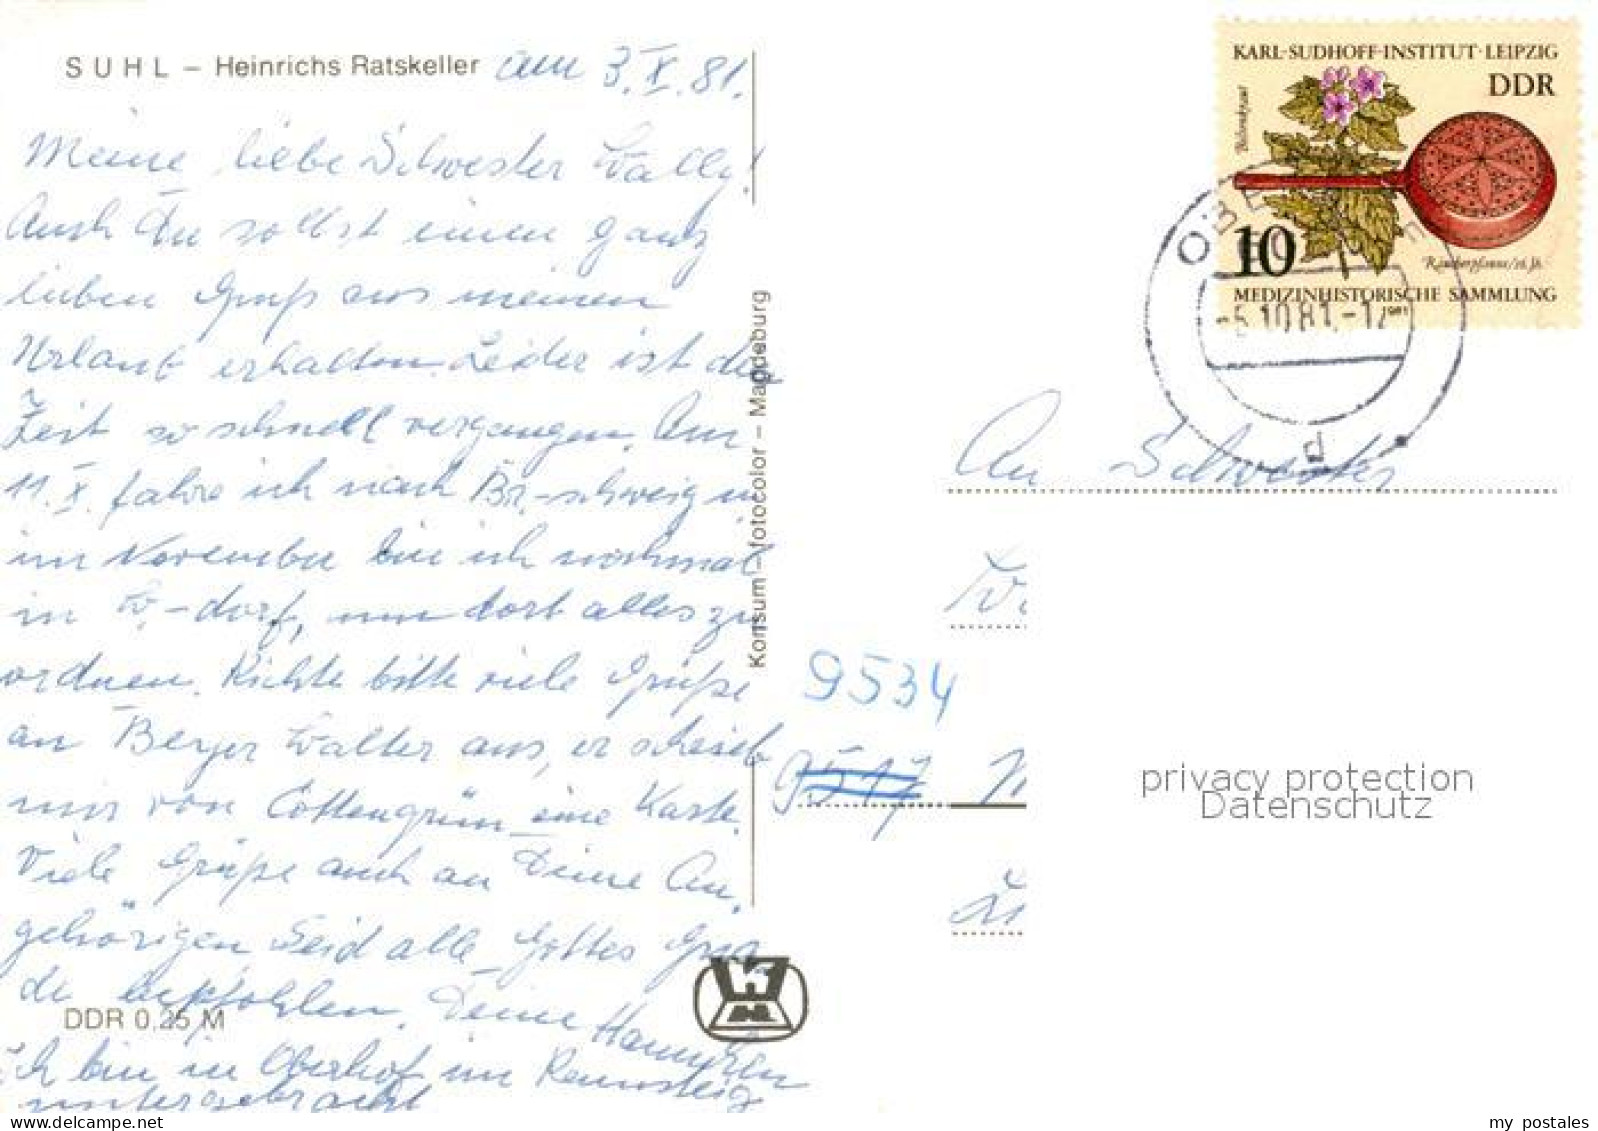 SUHL – Heinrichs Ratskeller am 3.X.81.
Meine liebe Schwester Wally!
Auch Du sollst einen ganz
lieben Gruß aus meinem
Urlaub erhalten. Leider ist die
Zeit so schnell vergangen. Am
11.X. fahre ich nach Br.-schweig u.
im November bin ich nochmal
in W.-dorf, um dort alles zu
ordnen. Richte bitte viele Grüße
an Berger Walter aus, er schrieb
mir von Cottengrün eine Karte.
Viele Grüße auch an Deine An-
gehörigen. Seid alle Gottes Gna-
de empfohlen. Deine Hannchen
Ich bin in Oberhof im Rennsteig
untergebracht
DDR 0,25 M
Konsum – fotocolor – Magdeburg
KARL-SUDHOFF-INSTITUT·LEIPZIG
DDR
Bilsenkraut
10
Räucherpfanne/16. Jh.
MEDIZINHISTORISCHE SAMMLUNG
1981
OBERHOF
-5.10.81.-12
d
An Schwester
9534
9517
privacy protection
Datenschutz
my postales